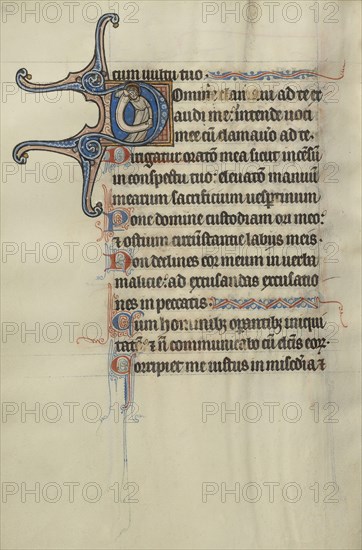 cum uultu tuo.
Domine clamaui ad te ex
audi me: intende uoci
mee cū clamauo ad te.
Dirigatur oratō mea sicut incēsū
in conspectu tuo: eleuatō manuū
mearum sacrificium uespertinum
Pone domine custodiam ori meo:
& ostium circūstantie labijs meis.
Non declines cor meum in uerba
malicie: ad excusandas excusatio
nes in peccatis.
Cum hominibꝫ operantibꝫ iniqui
tatē: & n̄ communicabo cū elcīs eoꝝ.
Corripiet me iustus in miscd̄ia &
PHOTO 12